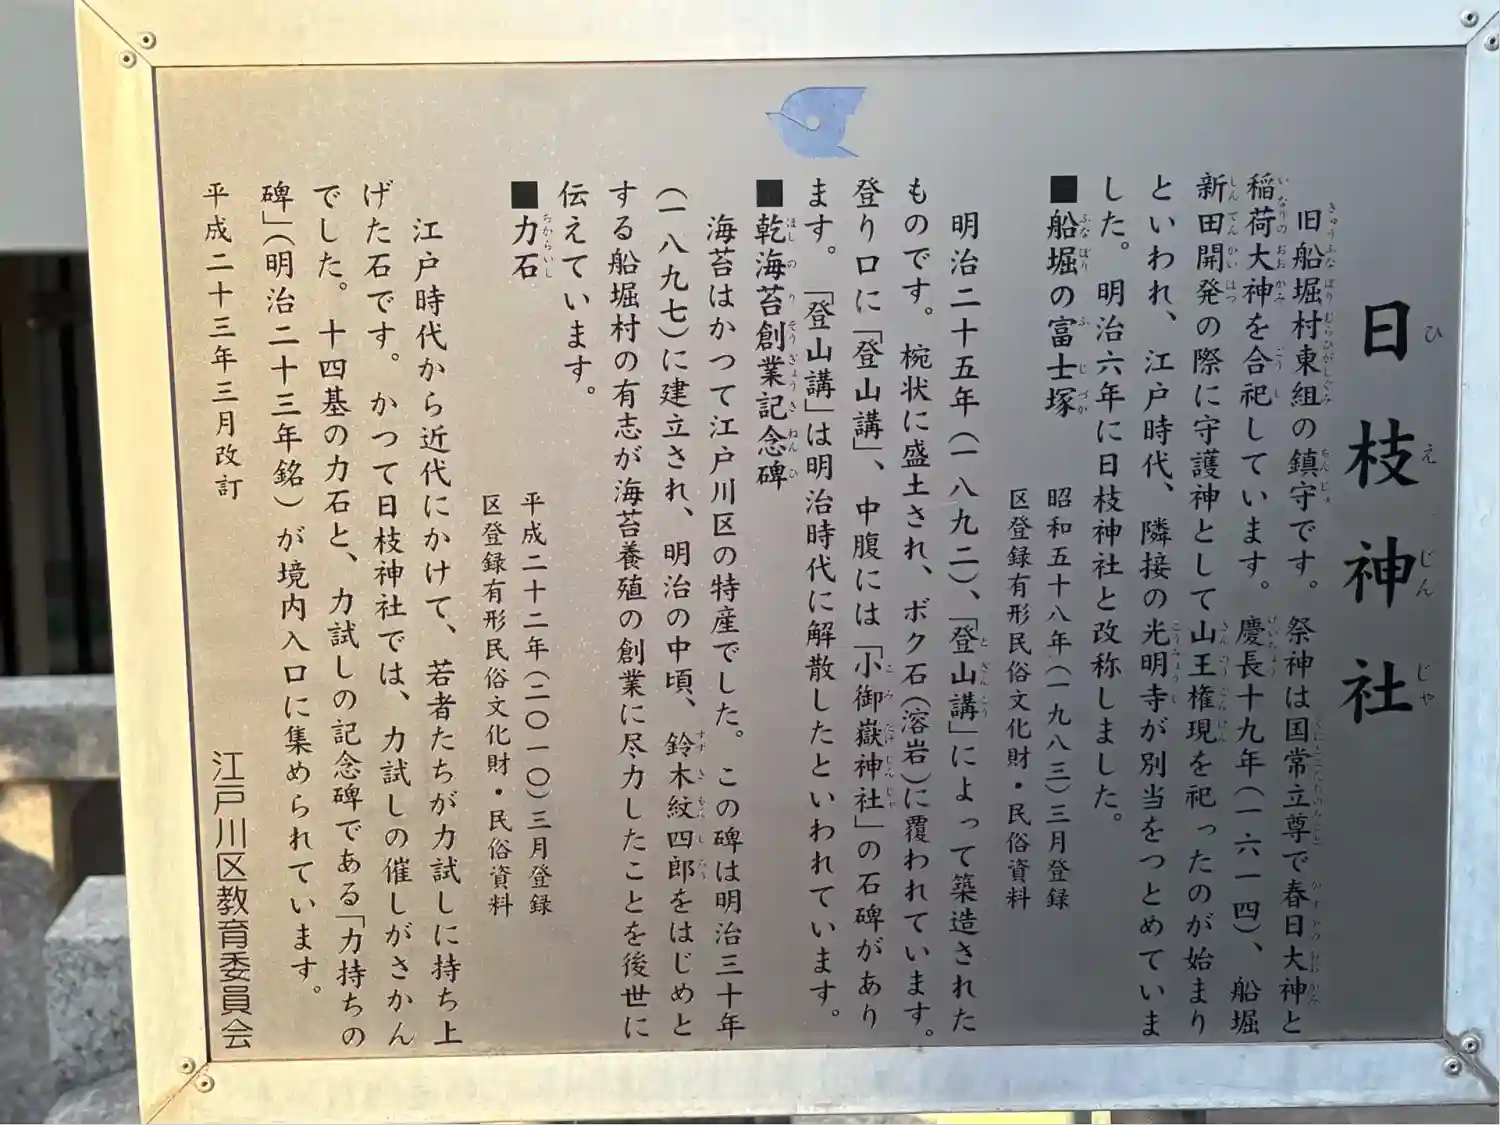 日枝神社
旧船堀村東組の鎮守です。祭神は国常立尊で春日大神と
稲荷大神を合祀しています。慶長十九年(一六一四)、船堀
新田開発の際に守護神として山王権現を祀ったのが始まり
といわれ、江戸時代、隣接の光明寺が別当をつとめていま
した。明治六年に日枝神社と改称しました。
■船堀の富士塚
昭和五十八年(一九八三)三月登録
区登録有形民俗文化財・民俗資料
明治二十五年(一八九二)、「登山講」によって築造された
ものです。椀状に盛土され、ボク石(溶岩)に覆われています。
登り口に「登山講」、中腹には「小御嶽神社」の石碑があり
ます。「登山講」は明治時代に解散したといわれています。
■乾海苔創業記念碑
海苔はかつて江戸川区の特産でした。この碑は明治三十年
(一八九七)に建立され、明治の中頃、鈴木紋四郎をはじめと
する船堀村の有志が海苔養殖の創業に尽力したことを後世に
伝えています。
■力石
平成二十二年(二〇一〇)三月登録
区登録有形民俗文化財・民俗資料
江戸時代から近代にかけて、若者たちが力試しに持ち上
げた石です。かつて日枝神社では、力試しの催しがさかん
でした。十四基の力石と、力試しの記念碑である「力持ちの
碑」(明治二十三年銘)が境内入口に集められています。
平成二十三年三月改訂
江戸川区教育委員会